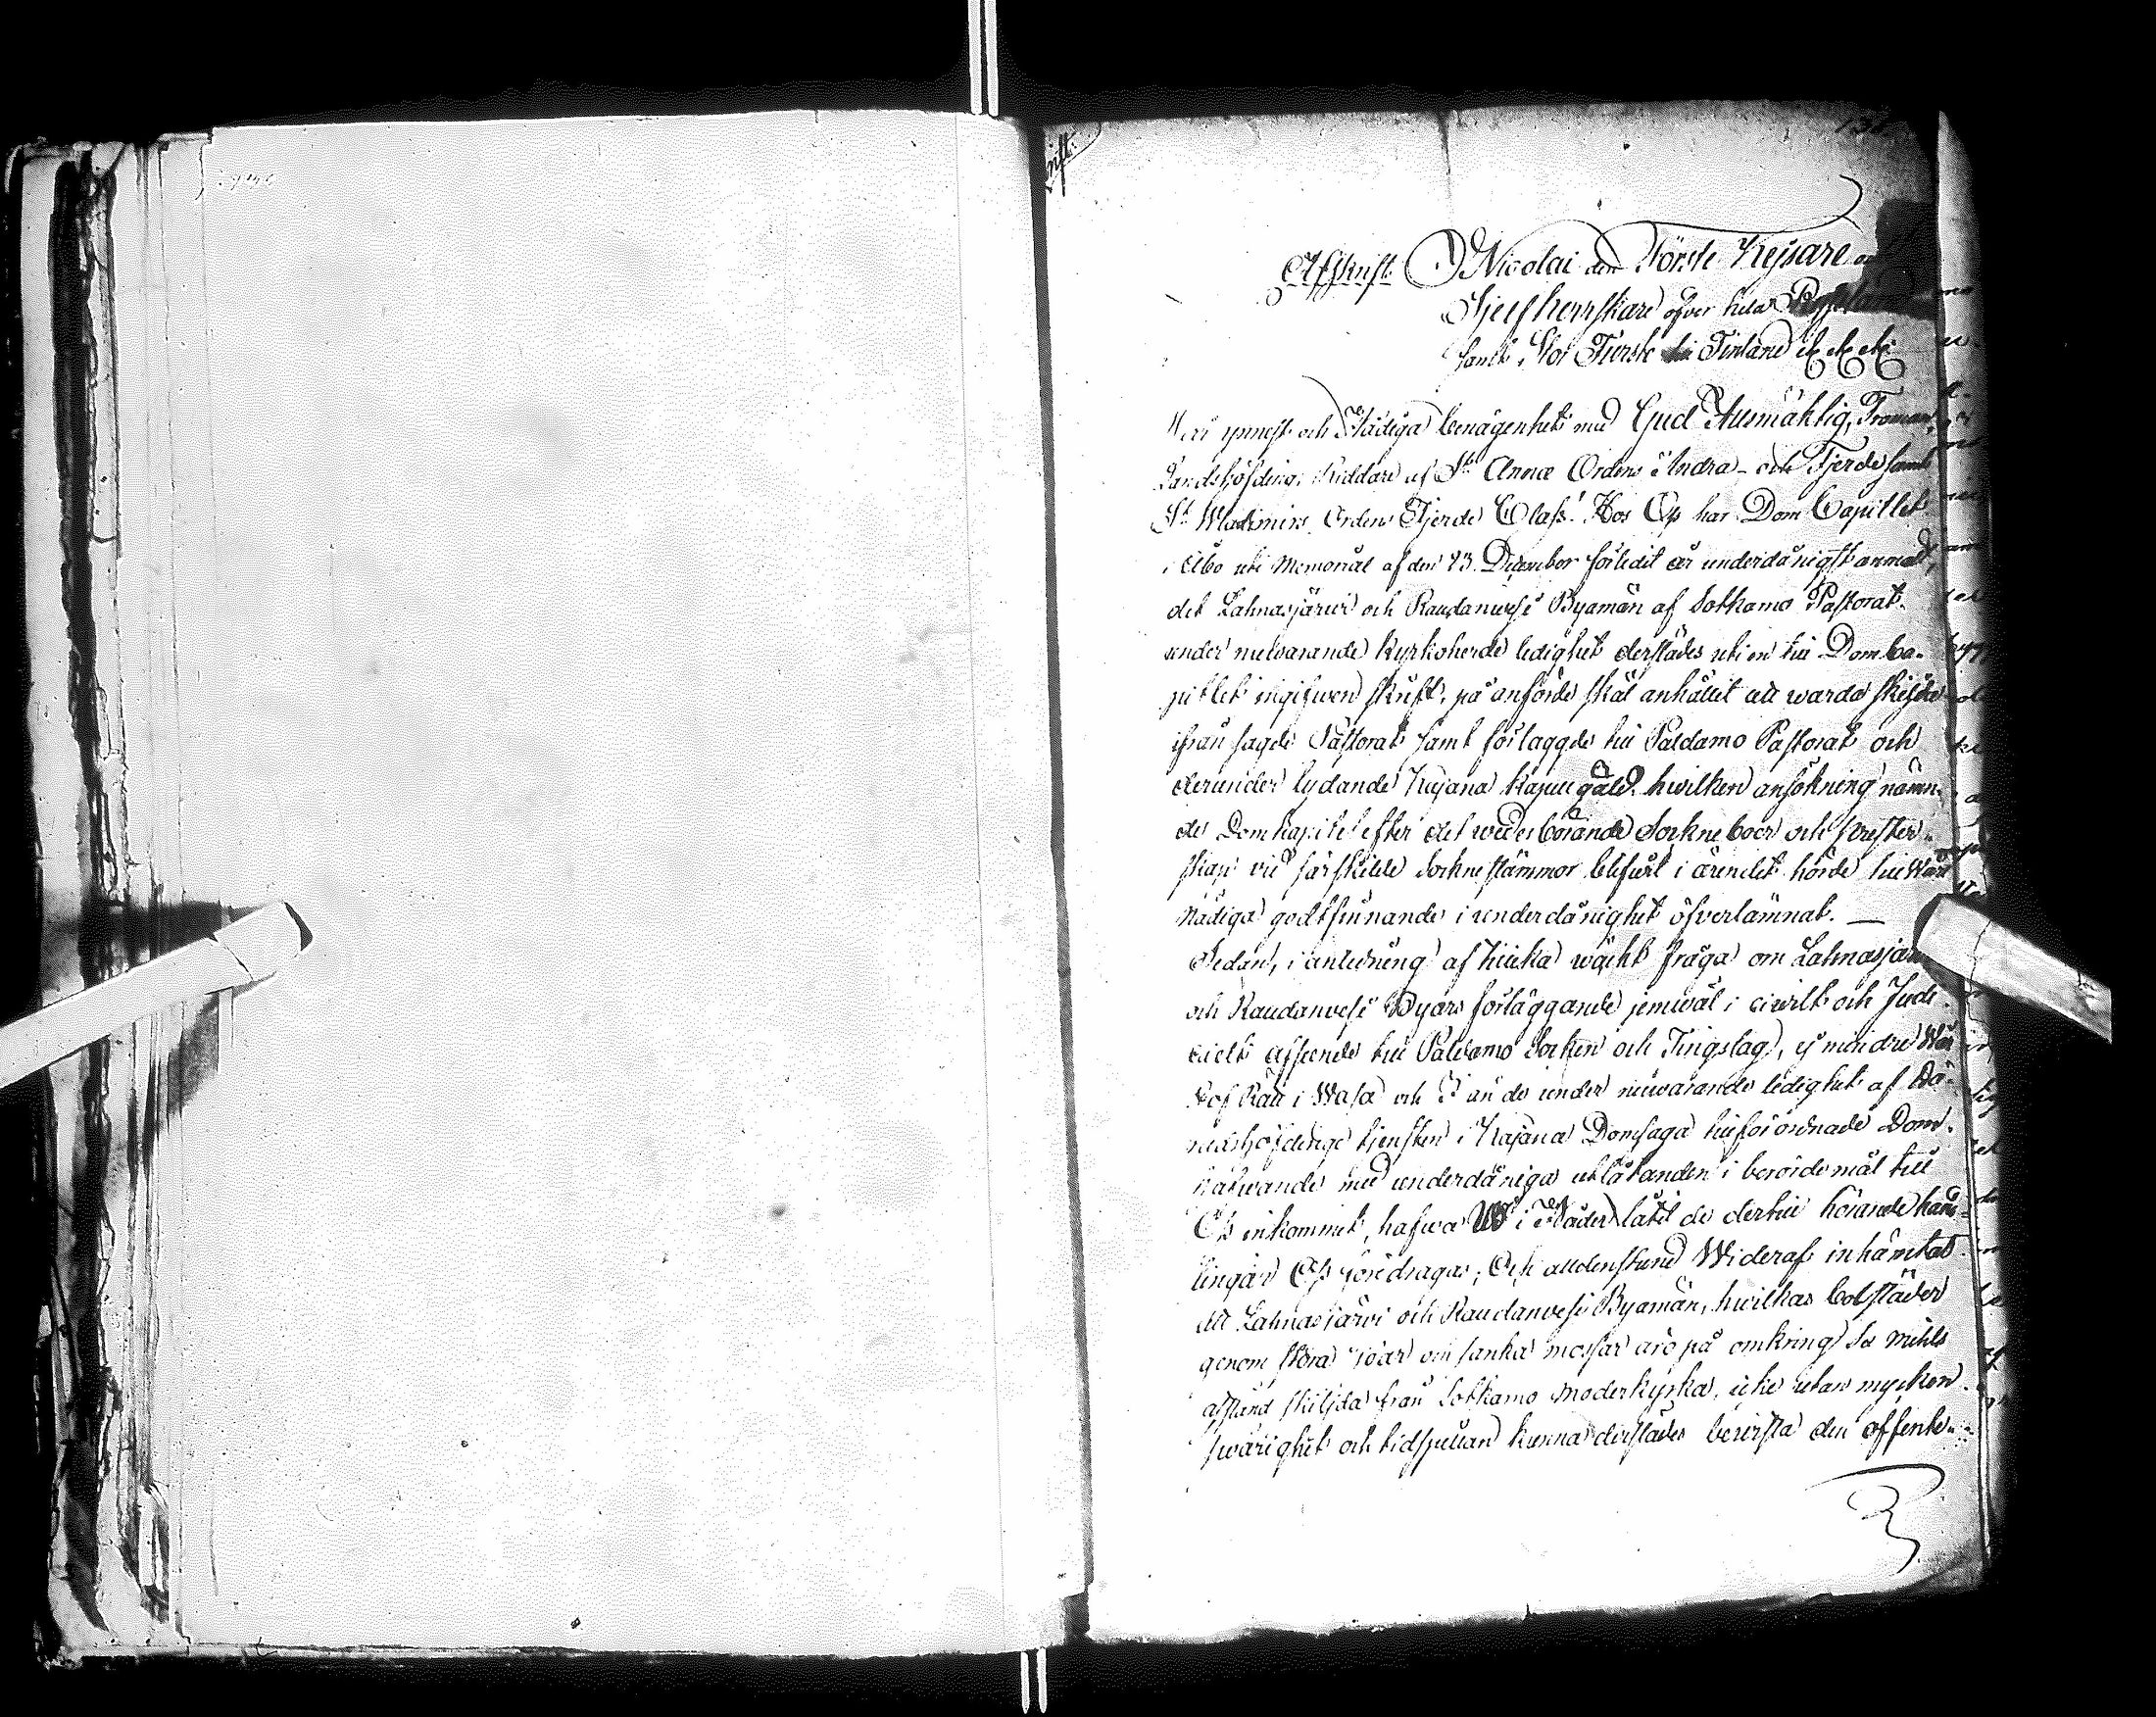 Afskrift. Nicolai den Förste Kejsare och
Sjelfherrskare öfver hela Ryssland
samt Stor Furste till Finland etc etc etc
ynnest och Nådiga benägenhet med Gud Allsmäktig, Troman,
Landshöfding, Riddare af St. Annæ Ordens Andra- och Fjerde samt
St. Wladimirs Ordens Fjerde Class! Hos Oss har Dom Capitlet
i Åbo uti Memorial af den 23. December förledit år underdånigst anmält,
det Lahnasjärwi och Raudanvesi Byamän af Sotkamo Pastorat
under nuwarande Kyrkoherde ledighet derstädes uti en till Dom Ca-
pitlet ingifwen skrift, på anförde skäl anhållit att warda skiljde
ifrån sagde Pastorat samt förlaggde till Paldamo Pastorat och
derunder lydande Kajana Kapell gäld hwilken ansökning nämn-
de Domkapitel efter det wederbörande Sockneboer och Prester-
skap wid särskilde Sockne stämmor blifwit i ärendet hörde till Wårt
Nådiga godtfinnande i underdånighet öfverlämnat. —
Sedan, i anledning af wäckt fråga om Lahnasjärwi
och Raudanvesi Byars förläggande jemwäl i civilt och Judi-
cielt afseende till Paldamo Socken och Tingslag, ej mindre Wår
Hof Rätt i Wasa och än de under nuwarande ledighet af Hä-
radshöfdinge tjensten i Kajana Domsaga tillförordnade Dom-
hafwande med underdåniga utlåtanden i berörde mål till
Oss inkommit, hafwa Wi i Nåder låtit de dertill hörande hand-
lingar Oss föredragas; Och alldenstund Wi deraf inhämtat
att Lahnasjärwi och Raudanvesi Byamän, hwilkas bolstäder
genom stora sjöar och sanka mossar äro på omkring sex mihls
afstånd skiljda från Sotkamo moderkyrka, icke utan mycken
swårighet och tidspillan kunna derstädes bewista den offente-